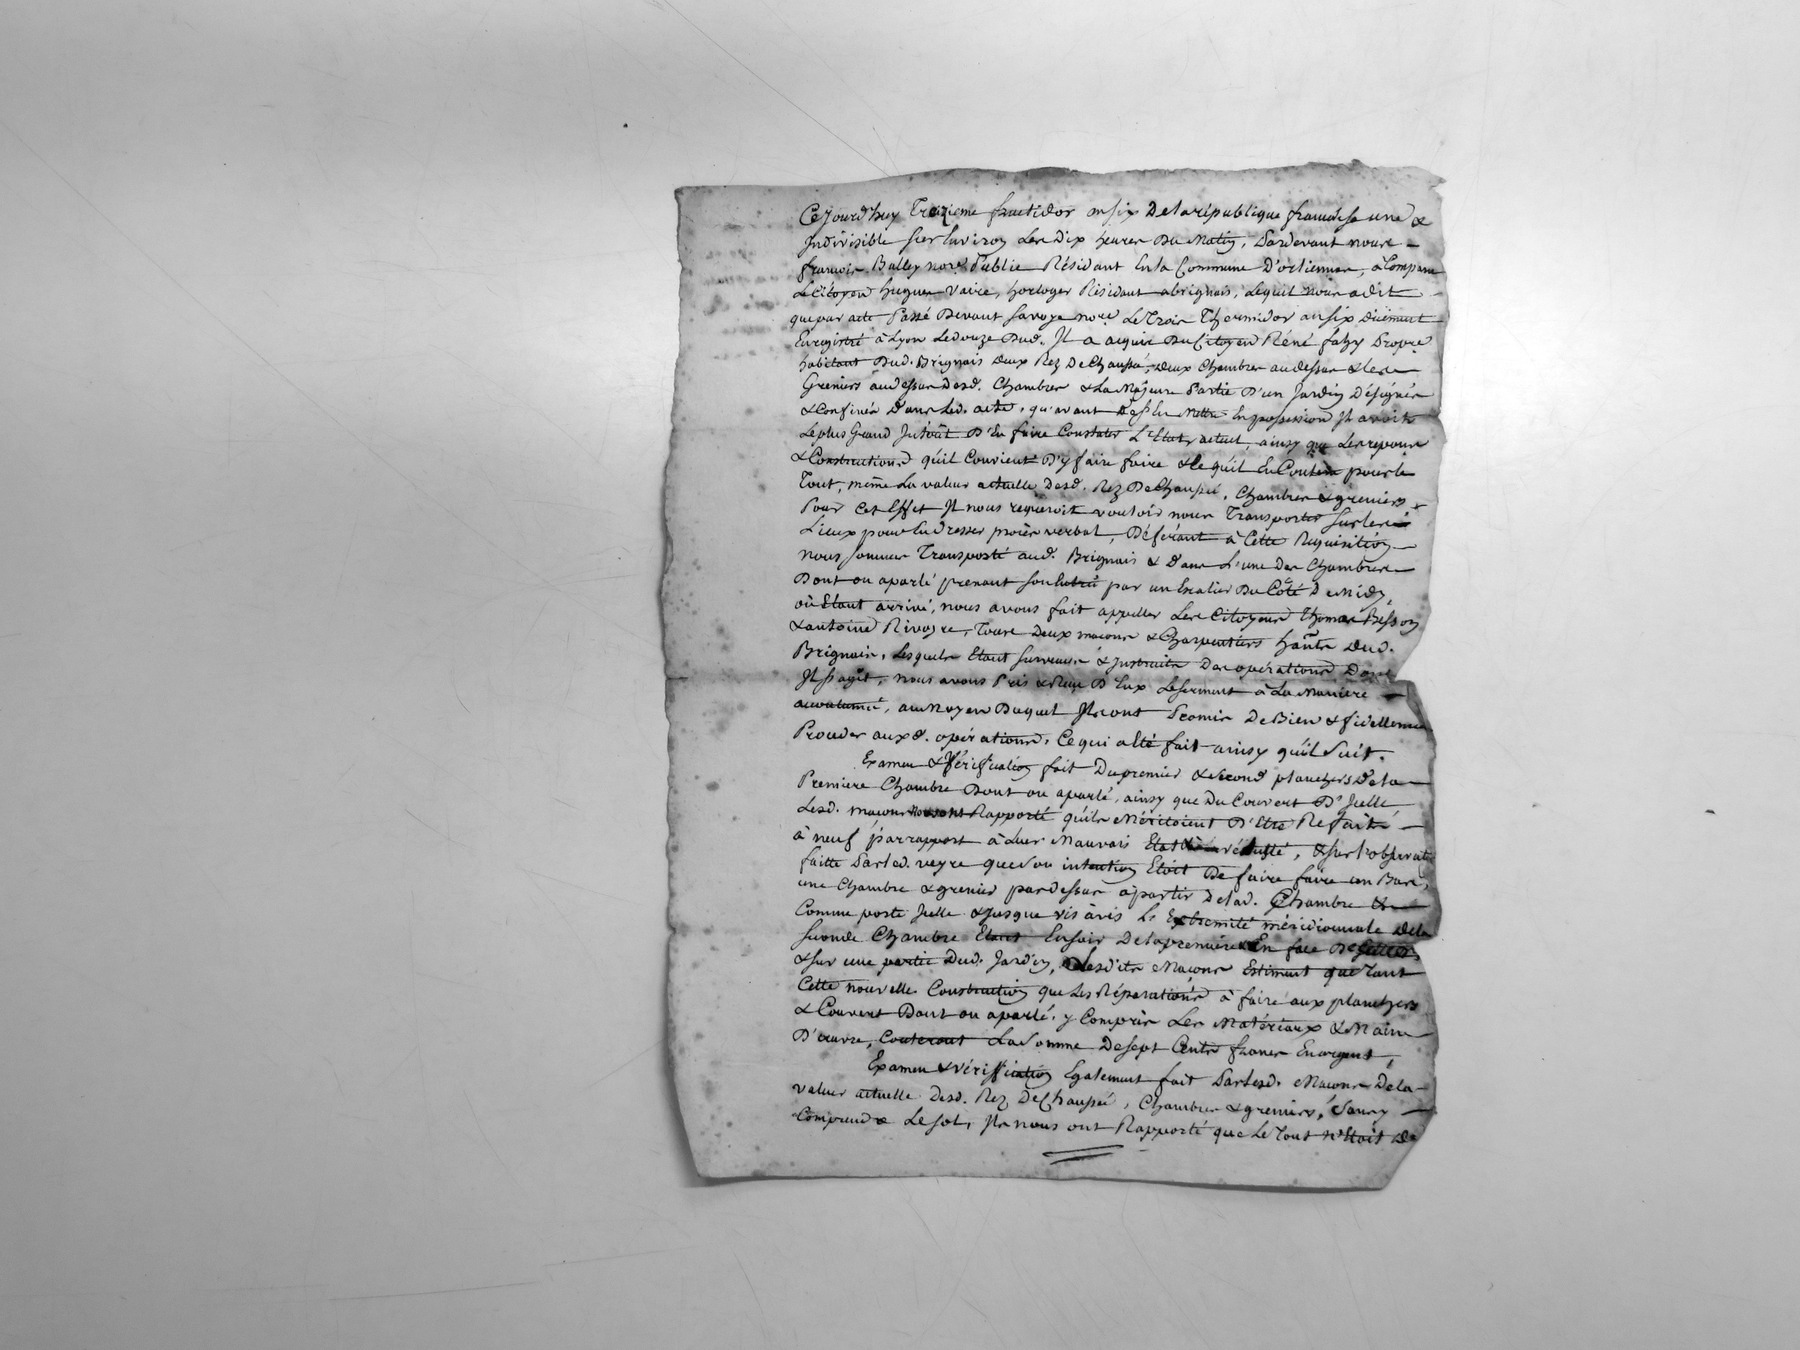 Cejourd'huy Treizieme fructidor an six De la république francaise une &
Indivisible sur Environ Les Dix heures Du Matin, Pardevant nous
francois Balley nore. Public Résidant En la Commune D'orlienas, a Comparu
Le Citoyen hugues Vaire, horloger Résidant a brignais, Lequel nous a dit
que par acte Passé Devant Savoye nore. Le Trois Thermidor an six Duëment
Enregistré à Lyon Le douze Dud. Il a acquis Du Citoyen Réné Propre
habitant Dud. Brignais deux Rez De Chaussé, deux Chambres au dessus & les
Greniers audessus Desd. Chambres & La Majeure Partie D'un Jardin Désignés
& Confinés Dans Led. acte, qu'avant De En possession Il avoit
Le plus Grand Intérêt D'En faire Constater L'Etat actuel, ainsy que Les
& Constructions qu'il Convient D'y faire faire & Ce qu'il En Coutera pour le
Tout, même La valeur actuelle Desd. Rez De Chaussé, Chambres & greniers,
Pour Cet Effet Il nous requeroit vouloir nous Transporter Sur les
Lieux pour En Dresser procès verbal, Déférant à Cette Requisition
nous sommes Transporté aud. Brignais & Dans L'une Des Chambres
Dont on a parlé prenant son Entrée par un Escalier Du Côté De Midy,
où Etant arrivé, nous avons fait appeller Les Citoyens Thomas Besson
& antoine Rivoyre, Tous Deux macons & Charpentiers hants Dud.
Brignais, Lesquels Etant survenus & Instruits Des opérations Dont
Il s'agit, nous avons Pris & Reçu D'Eux Le serment à La Maniere
accoutumée, au Moyen Duquel Ils ont Promis De Bien & fidellement
Procéder auxd. opérations, Ce qui a Eté fait ainsy qu'il Suit.
Examen & Vérification fait Du premier & second planchers De la
Premiere Chambre Dont on a parlé, ainsy que Du Couvert D'Icelle
Lesd. macons nous ont Rapporté qu'ils Méritoient D'Etre Refaits
à neuf par rapport à Leur Mauvais Etat & vétusté, & sur l'observation
faitte Par led. veyre que son intention Etoit De faire faire un Bas,
une Chambre & grenier pardessus a partir De lad. Chambre
Comme porte Icelle & jusque vis à vis L' Extremité méridionnale De la
seconde Chambre Etant Ensoir De la première En face
& sur une partie Dud. Jardin, Lesdits Maçons Estiment que Tant
Cette nouvelle Construction que Les Réparations à faire aux planchers
& Couvert Dont on a parlé, y Compris Les Matériaux & Main
D'œuvre, Couteront La Somme De sept Cents francs En argent,
Examen & vériffication Egalement fait Par lesd. Macons De la
valeur actuelle Desd. Rez De Chaussé, Chambres & greniers, Sans y
Comprendre Le sol, Ils nous ont Rapporté que Le Tout n'Etoit De